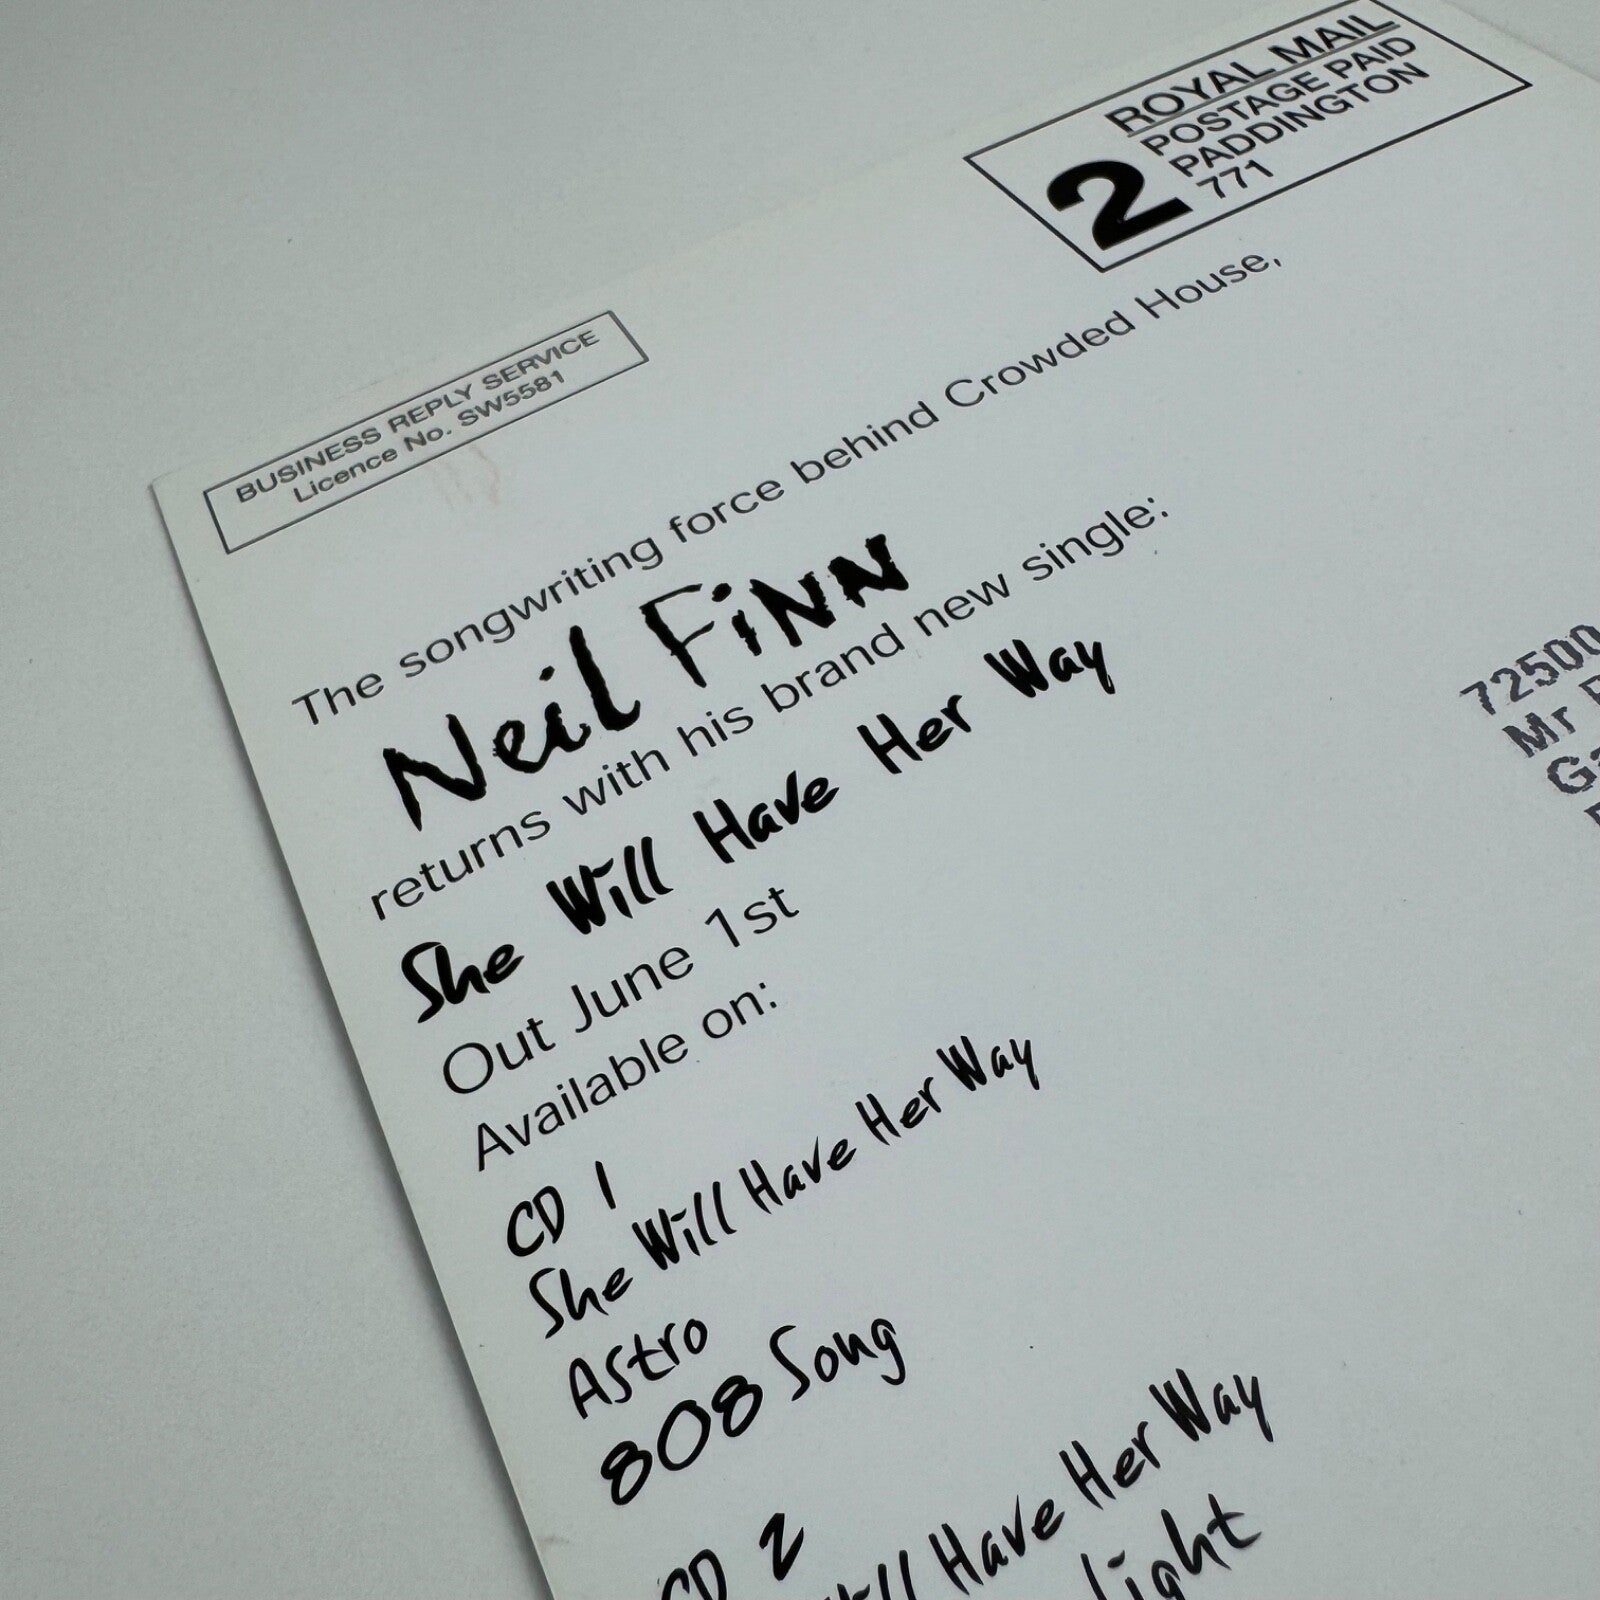 ROYAL MAIL
2
POSTAGE PAID
PADDINGTON
771
BUSINESS REPLY SERVICE
Licence No. SW5581
The songwriting force behind Crowded House,
Neil Finn
returns with his brand new single:
She Will Have Her Way
Out June 1st
Available on:
CD 1
She Will Have Her Way
Astro
808 Song
CD 2
Will Have Her Way
72500
Mr